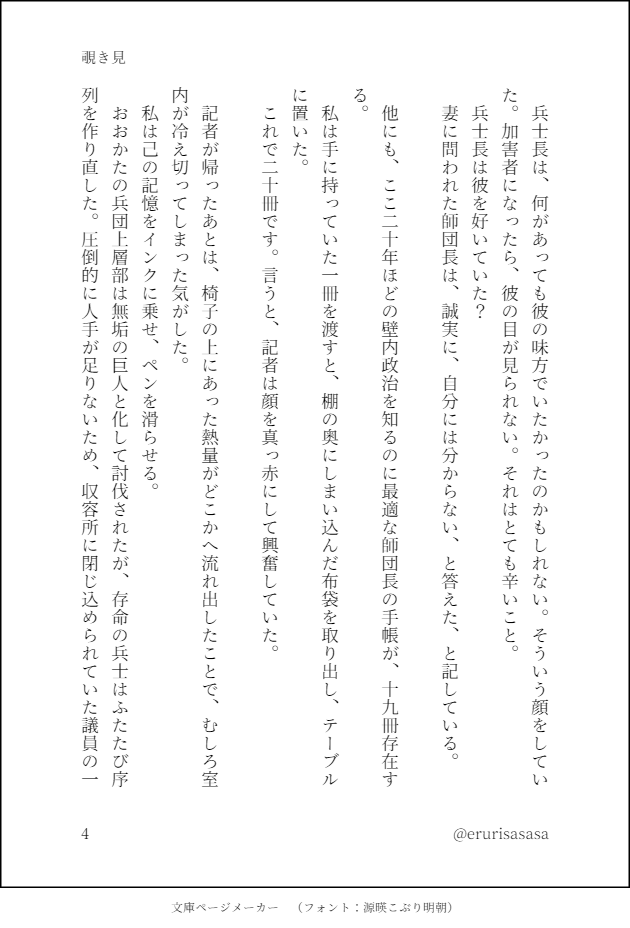 覗き見
　兵士長は、何があっても彼の味方でいたかったのかもしれない。そういう顔をしてい
た。加害者になったら、彼の目が見られない。それはとても辛いこと。
　兵士長は彼を好いていた？
　妻に問われた師団長は、誠実に、自分には分からない、と答えた、と記している。
　他にも、ここ二十年ほどの壁内政治を知るのに最適な師団長の手帳が、十九冊存在す
る。
　私は手に持っていた一冊を渡すと、棚の奥にしまい込んだ布袋を取り出し、テーブル
に置いた。
　これで二十冊です。言うと、記者は顔を真っ赤にして興奮していた。
　記者が帰ったあとは、椅子の上にあった熱量がどこかへ流れ出したことで、むしろ室
内が冷え切ってしまった気がした。
　私は己の記憶をインクに乗せ、ペンを滑らせる。
　おおかたの兵団上層部は無垢の巨人と化して討伐されたが、存命の兵士はふたたび序
列を作り直した。圧倒的に人手が足りないため、収容所に閉じ込められていた議員の一
4
@erurisasasa
文庫ページメーカー　（フォント：源暎こぶり明朝）